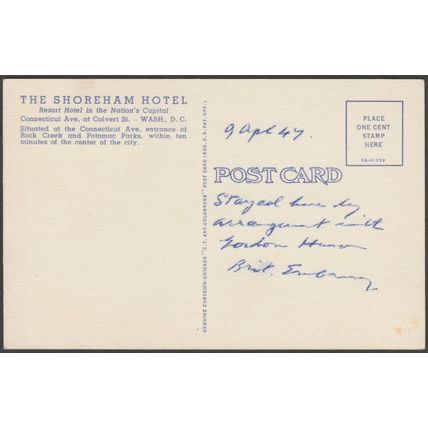 THE SHOREHAM HOTEL
Resort Hotel in the Nation's Capital
Connecticut Ave. at Calvert St. — WASH., D. C.
Situated at the Connecticut Ave. entrance of
Rock Creek and Potomac Parks, within ten
minutes of the center of the city.
GENUINE CURTEICH-CHICAGO "C.T. ART-COLORTONE" POST CARD (REG. U.S. PAT. OFF.)
PLACE
ONE CENT
STAMP
HERE
9 Apl 47.
POST CARD
Stayed here by
arrangement with
Gordon
Brit. Embassy